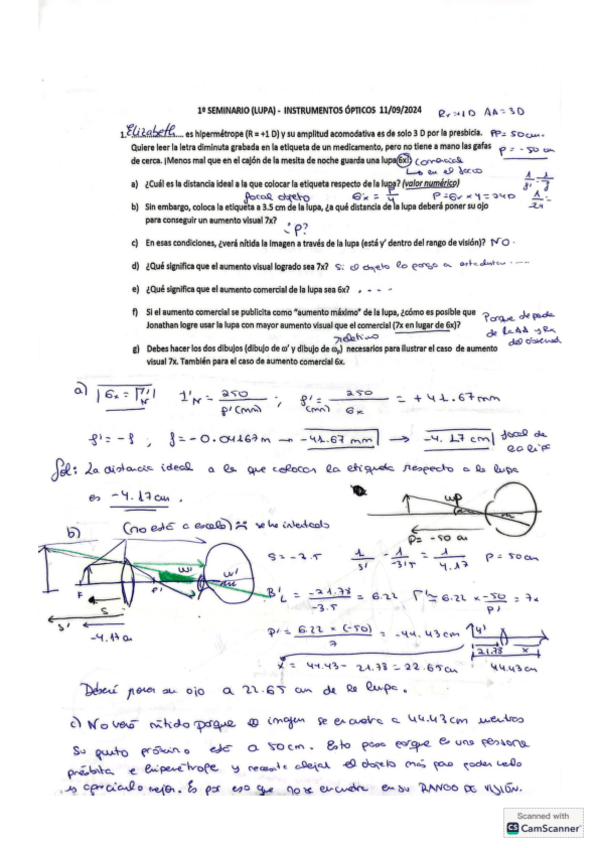 1º SEMINARIO (LUPA) - INSTRUMENTOS ÓPTICOS 11/09/2024 Rr=+1D AA=3D
1. Elizabeth.... es hipermétrope (R = +1 D) y su amplitud acomodativa es de solo 3 D por la presbicia. PP=50cm.
Quiere leer la letra diminuta grabada en la etiqueta de un medicamento, pero no tiene a mano las gafas P = -50cm
de cerca. (Menos mal que en el cajón de la mesita de noche guarda una lupa 6x!) comercial
en el foco
a) ¿Cuál es la distancia ideal a la que colocar la etiqueta respecto de la lupa? (valor numérico)
focal objeto
b) Sin embargo, coloca la etiqueta a 3.5 cm de la lupa, ¿a qué distancia de la lupa deberá poner su ojo
para conseguir un aumento visual 7x?
¿P?
c) En esas condiciones, ¿verá nítida la imagen a través de la lupa (está y' dentro del rango de visión)? NO.
d) ¿Qué significa que el aumento visual logrado sea 7x? Si el objeto lo pongo a esta distan ....
e) ¿Qué significa que el aumento comercial de la lupa sea 6x? . . . .
f) Si el aumento comercial se publicita como "aumento máximo" de la lupa, ¿cómo es posible que Porque depende
Jonathan logre usar la lupa con mayor aumento visual que el comercial (7x en lugar de 6x)? de la AA y Rr
del observad.
g) Debes hacer los dos dibujos (dibujo de ω' y dibujo de ωp) necesarios para ilustrar el caso de aumento
visual 7x. También para el caso de aumento comercial 6x.
a) 6x = Γ'N 1'N = 250 / f'(mm) ; f' (mm) = 250 / 6x = +41.67mm
f'=-f ; f=-0.04167m → -41.67 mm → -4.17 cm focal de
Sol: La distancia ideal a la que colocar la etiqueta respecto a la lupa
es -4.17cm.
ωp
P= -50 cm
b) (no está a escala) se ha intentado
S=-3.5 1/s' - 1/-3.5 = 1/4.17 P=50cm
ω' ω'
F P'
B'L = -21.78 / -3.5 = 6.22 Γ'= 6.22 × -50 / P' = 7x
S
S'
-4.17cm
P'= 6.22 × (-50) / 7 = -44.43cm
y'
21.78 x
44.43cm
x = 44.43- 21.78 = 22.65cm
Deberá poner su ojo a 22.65 cm de la lupa.
c) No verá nítido porque la imagen se encuentra a 44.43cm mientras
su punto próximo está a 50cm. Esto pasa porque es una persona
présbita e hipermétrope y necesita alejar el objeto más para poder verlo
y apreciarlo mejor. Es por eso que no se encuentra en su RANGO DE VISIÓN.
Scanned with
CS CamScanner